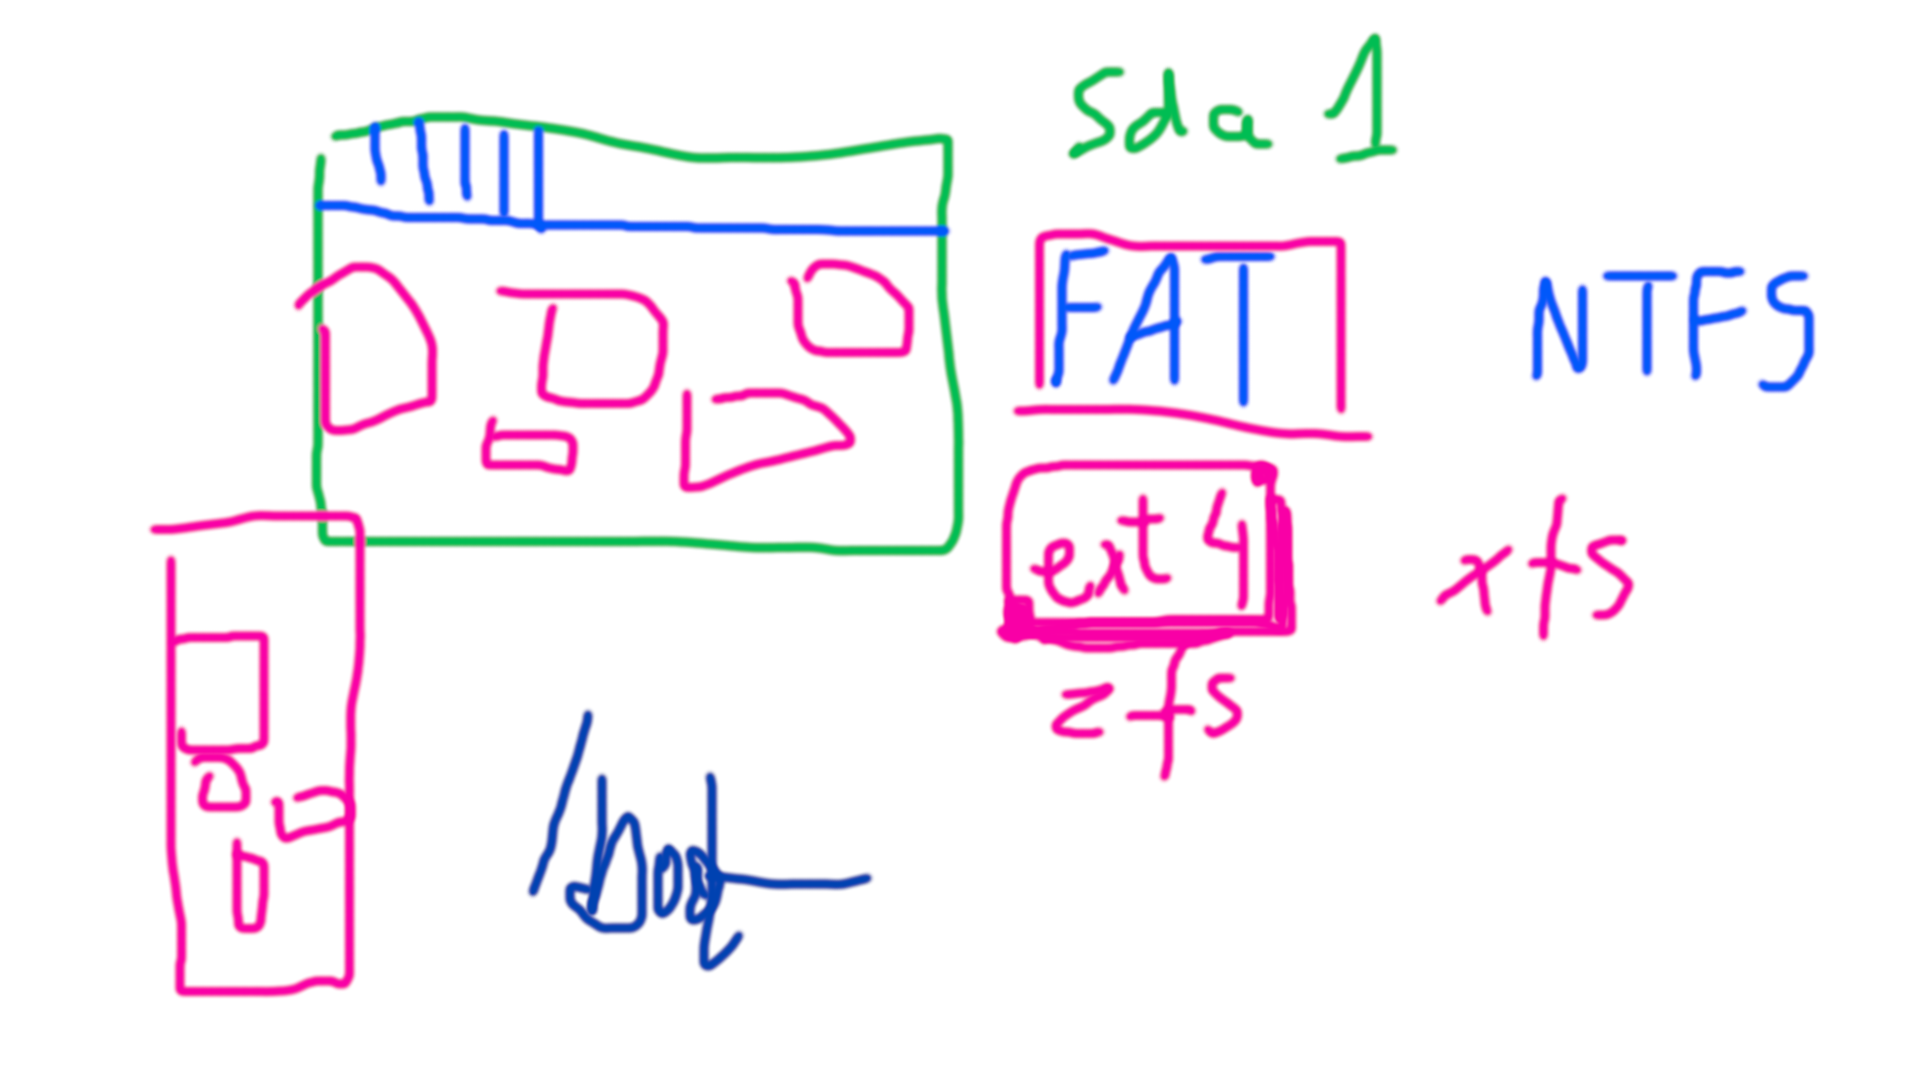 Sda 1
FAT NTFS
ext4 xfs
zfs
/boot